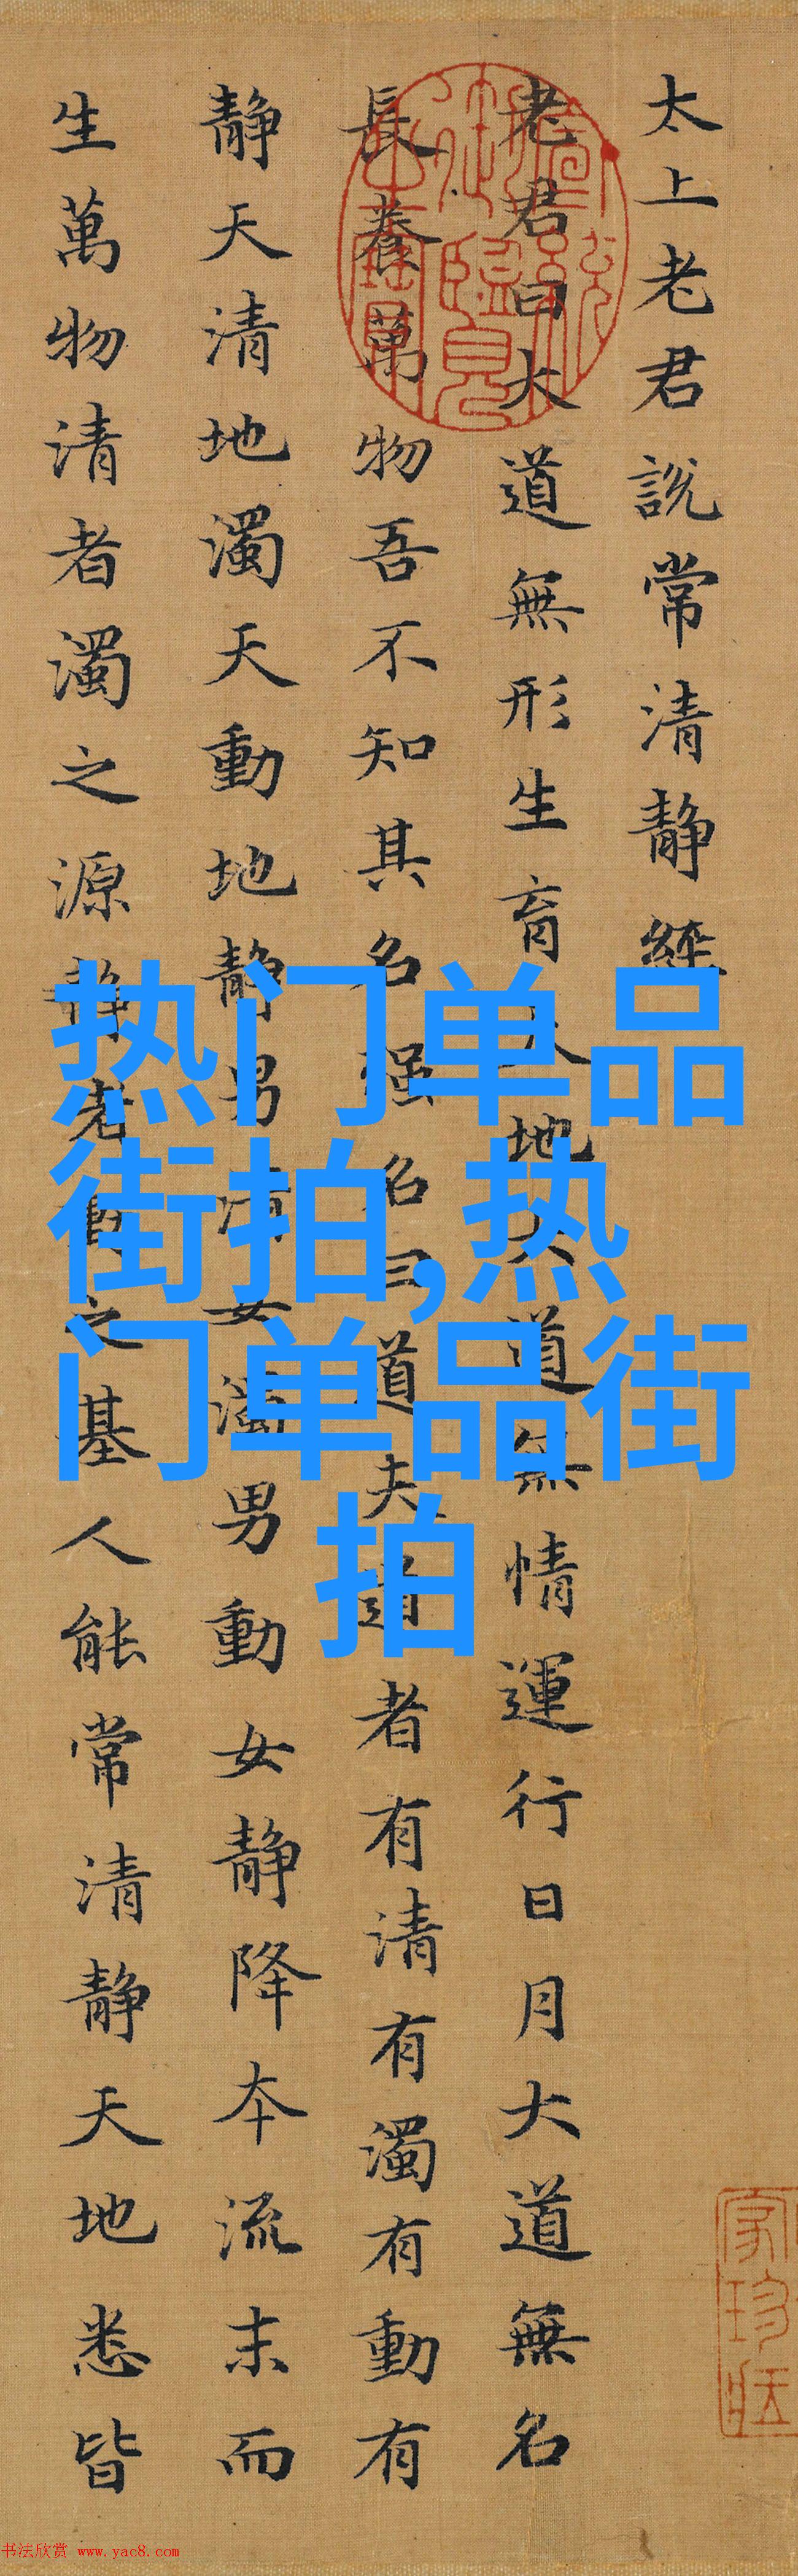 太上老君說常清靜經
老君曰大道無形生育天地大道無情運行日月大道無名
長養萬物吾不知其名强名曰道夫道者有清有濁有動有
靜天清地濁天動地靜男清女濁男動女靜降本流末而
生萬物清者濁之源靜者動之基人能常清靜天地悉皆
热门单品
街拍,热
门单品街
拍
家珍
书法欣赏 www.yac8.com